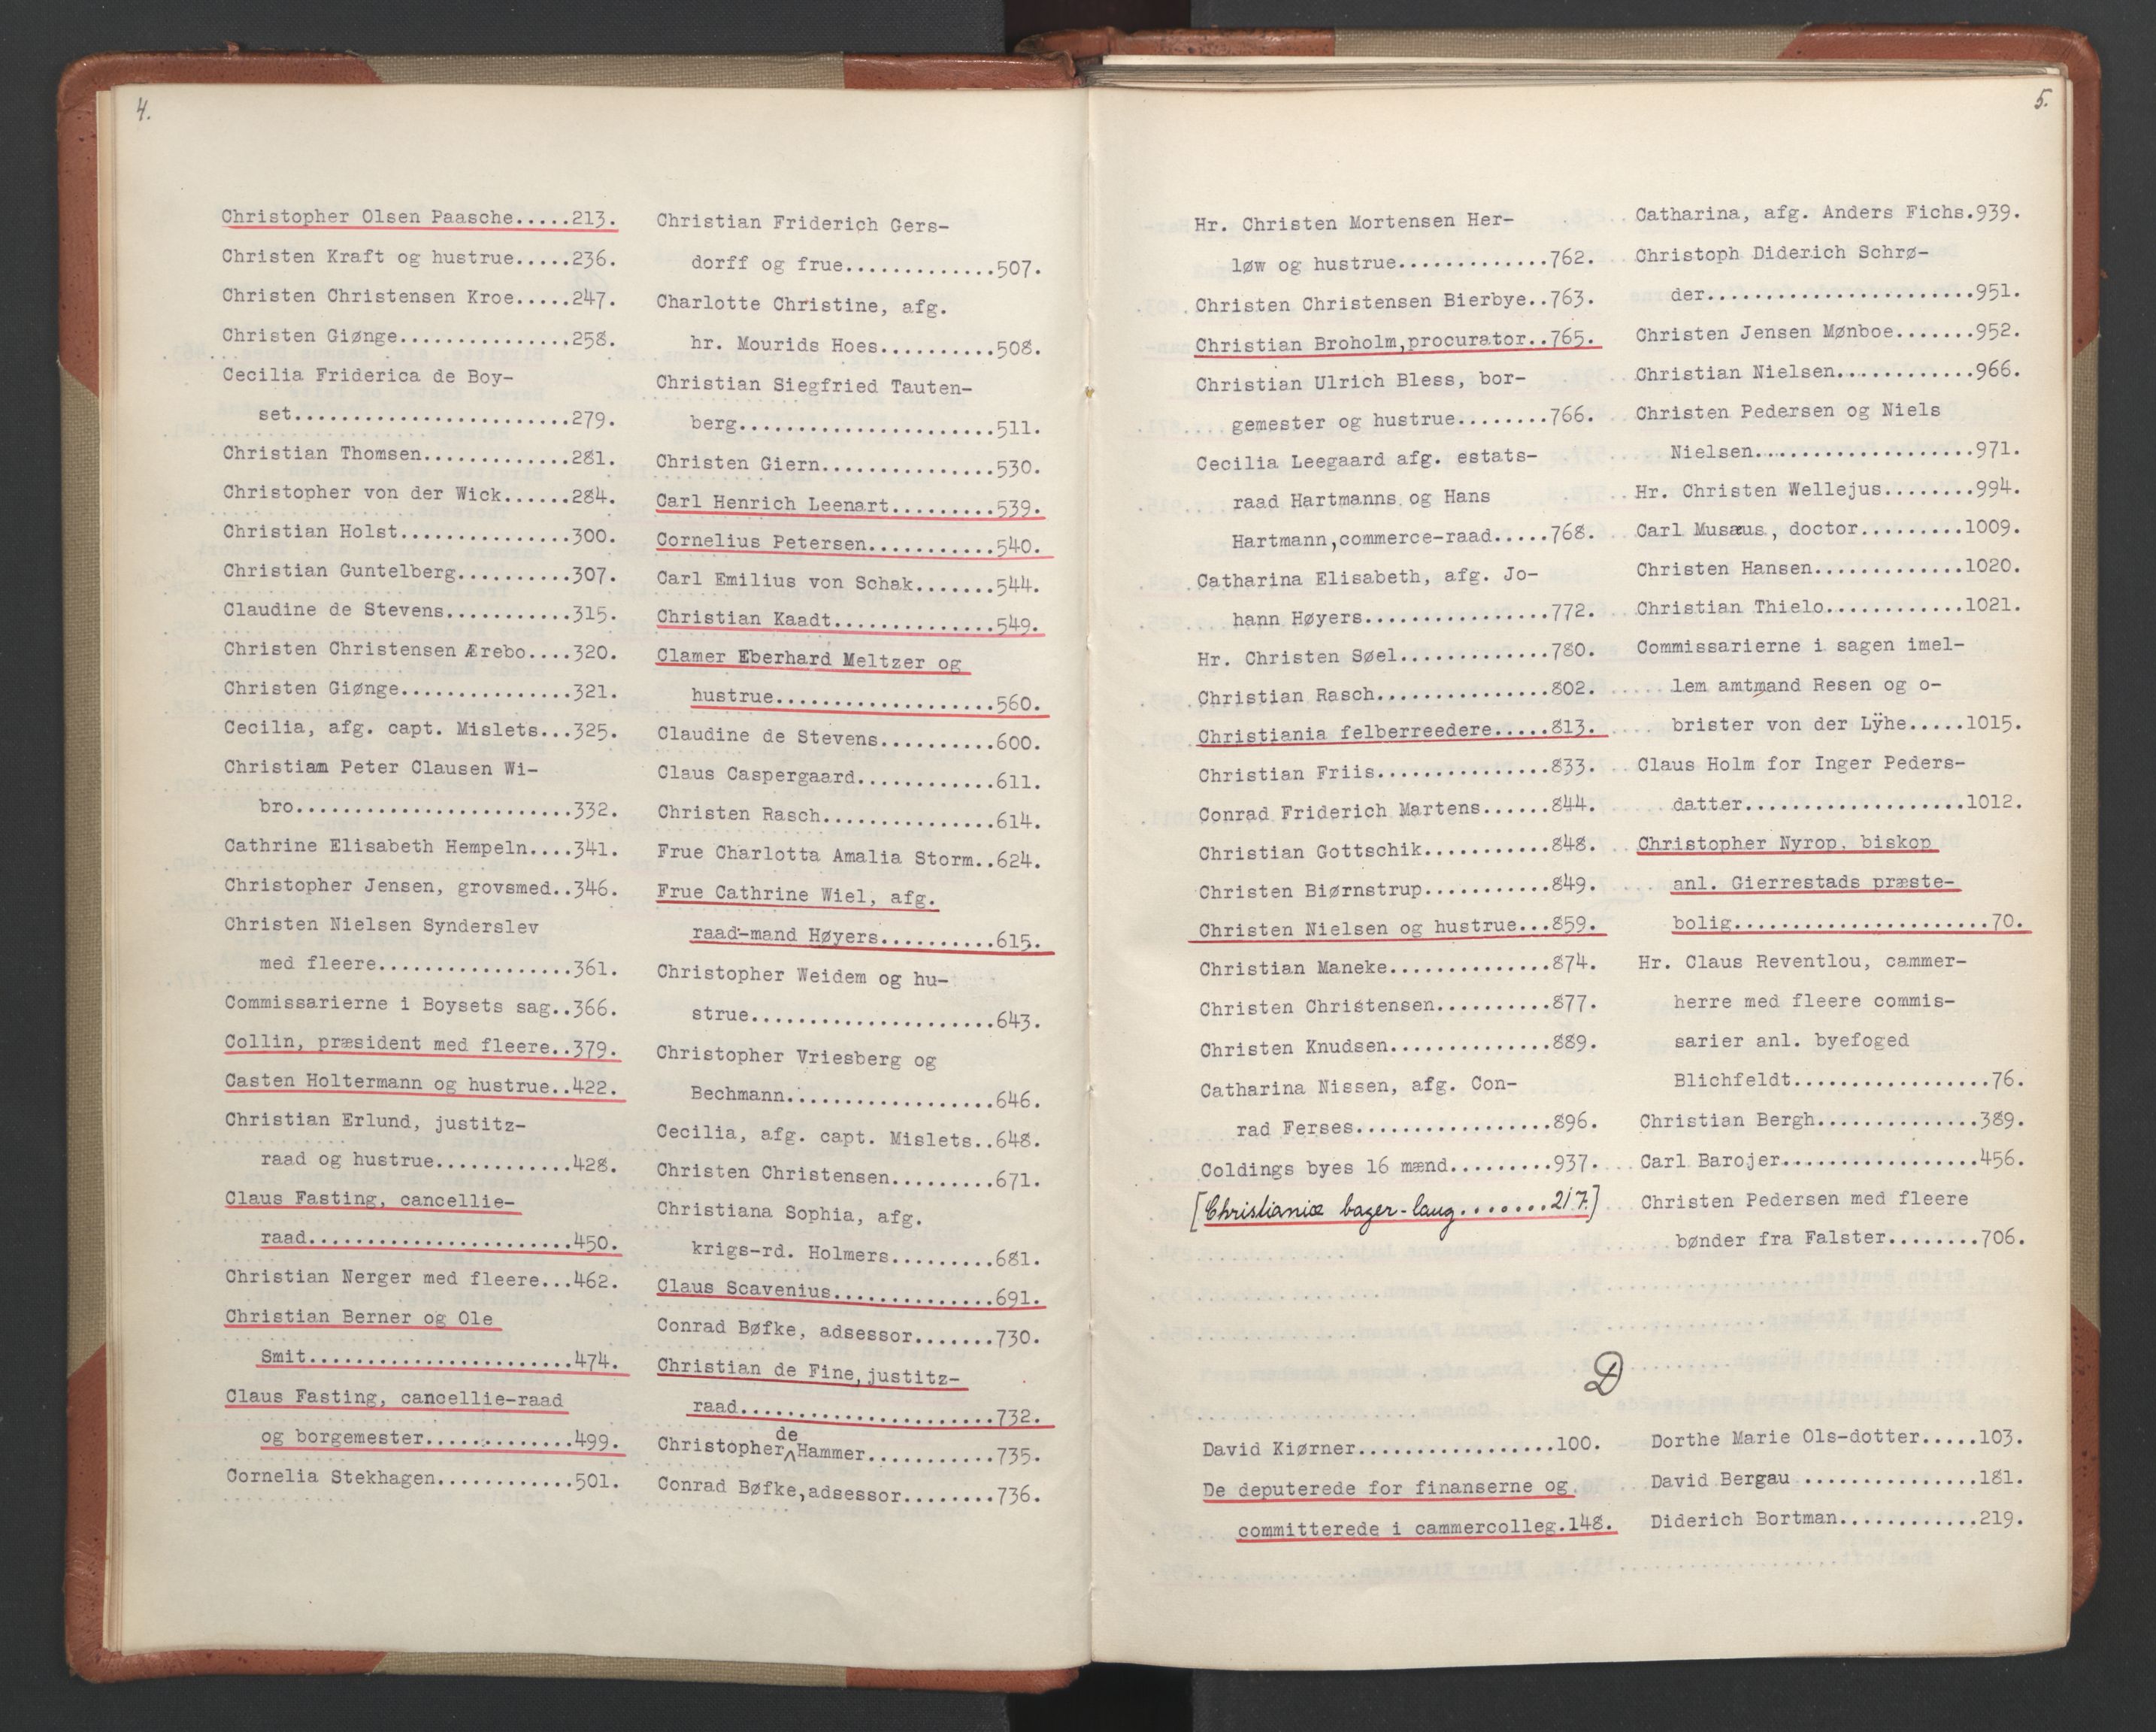 4.
Christopher Olsen Paasche.....213.
Christen Kraft og hustrue.....236.
Christen Christensen Kroe.....247.
Christen Giønge...............258.
Cecilia Friderica de Boy-
set........................279.
Christian Thomsen.............281.
Christopher von der Wick......284.
Christian Holst...............300.
Christian Guntelberg..........307.
Claudine de Stevens...........315.
Christen Christensen Ærebo....320.
Christen Giønge...............321.
Cecilia, afg. capt. Mislets...325.
Christiam Peter Clausen Wi-
bro........................332.
Cathrine Elisabeth Hempeln....341.
Christopher Jensen, grovsmed..346.
Christen Nielsen Synderslev
med fleere.................361.
Commissarierne i Boysets sag..366.
Collin, præsident med fleere..379.
Casten Holtermann og hustrue..422.
Christian Erlund, justitz-
raad og hustrue............428.
Claus Fasting, cancellie-
raad.......................450.
Christian Nerger med fleere...462.
Christian Berner og Ole
Smit.......................474.
Claus Fasting, cancellie-raad
og borgemester.............499.
Cornelia Stekhagen............501.
Christian Friderich Gers-
dorff og frue.............507.
Charlotte Christine, afg.
hr. Mourids Hoes..........508.
Christian Siegfried Tauten-
berg......................511.
Christen Giern...............530.
Carl Henrich Leenart.........539.
Cornelius Petersen...........540.
Carl Emilius von Schak.......544.
Christian Kaadt..............549.
Clamer Eberhard Meltzer og
hustrue...................560.
Claudine de Stevens..........600.
Claus Caspergaard............611.
Christen Rasch...............614.
Frue Charlotta Amalia Storm..624.
Frue Cathrine Wiel, afg.
raad-mand Høyers..........615.
Christopher Weidem og hu-
strue.....................643.
Christopher Vriesberg og
Bechmann..................646.
Cecilia, afg. capt. Mislets..648.
Christen Christensen.........671.
Christiana Sophia, afg.
krigs-rd. Holmers.........681.
Claus Scavenius..............691.
Conrad Bøfke, adsessor.......730.
Christian de Fine,justitz-
raad......................732.
Christopher de Hammer...........735.
Conrad Bøfke,adsessor........736.
5.
Hr. Christen Mortensen Her-
løw og hustrue.............762.
Christen Christensen Bierbye..763.
Christian Broholm,procurator..765.
Christian Ulrich Bless, bor-
gemester og hustrue........766.
Cecilia Leegaard afg. estats-
raad Hartmanns og Hans
Hartmann,commerce-raad.....768.
Catharina Elisabeth, afg. Jo-
hann Høyers................772.
Hr. Christen Søel.............780.
Christian Rasch...............802.
Christiania felberreedere.....813.
Christian Friis...............833.
Conrad Friderich Martens......844.
Christian Gottschik...........848.
Christen Biørnstrup...........849.
Christen Nielsen og hustrue...859.
Christian Maneke..............874.
Christen Christensen..........877.
Christen Knudsen..............889.
Catharina Nissen, afg. Con-
rad Ferses.................896.
Coldings byes 16 mænd.........937.
[Christianiæ bager-laug.......217.]
Catharina, afg. Anders Fichs.939.
Christoph Diderich Schrø-
der.......................951.
Christen Jensen Mønboe.......952.
Christian Nielsen............966.
Christen Pedersen og Niels
Nielsen...................971.
Hr. Christen Wellejus........994.
Carl Musæus, doctor.........1009.
Christen Hansen.............1020.
Christian Thielo............1021.
Commissarierne i sagen imel-
lem amtmand Resen og o-
brister von der Lÿhe.....1015.
Claus Holm for Inger Peders-
datter...................1012.
Christopher Nyrop, biskop
anl. Gierrestads præste-
bolig......................70.
Hr. Claus Reventlou, cammer-
herre med fleere commis-
sarier anl. byefoged
Blichfeldt.................76.
Christian Bergh..............389.
Carl Barojer.................456.
Christen Pedersen med fleere
bønder fra Falster........706.
D
David Kiørner.................100.
De deputerede for finanserne og
committerede i cammercolleg.148.
Dorthe Marie Ols-dotter.....103.
David Bergau ...............181.
Diderich Bortman............219.